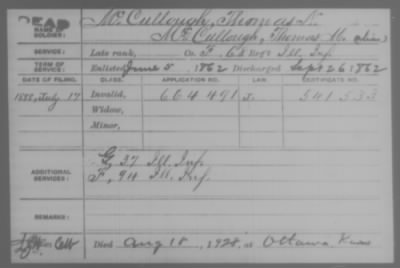 DEAD
NAME OF SOLDIER:
McCullough, Thomas N.
McCullough, Thomas M. (alias)
SERVICE: Late rank, Co. F, 68 Reg't Ill. Inf.
TERM OF SERVICE: Enlisted June 5 1862 Discharged Sept 26 1862
DATE OF FILING. CLASS. APPLICATION NO. LAW. CERTIFICATE NO.
1888, July 17 Invalid, 664 491 541 533
Widow,
Minor,
ADDITIONAL SERVICES: G, 37 Ill. Inf.
F, 94 Ill. Inf.
REMARKS:
Died Aug 18, 1928, at Ottawa, Kans